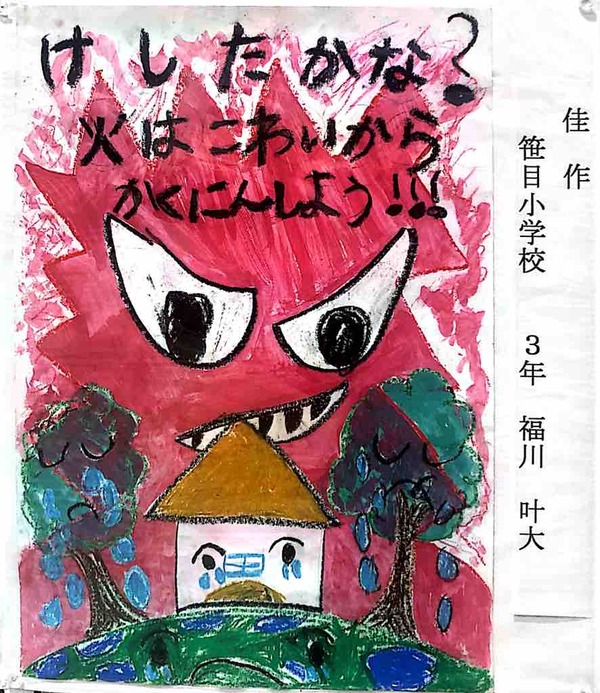 けしたかな?
火はこわいから
かくにんしよう!!!
佳作
笹目小学校 3年 福川 叶大